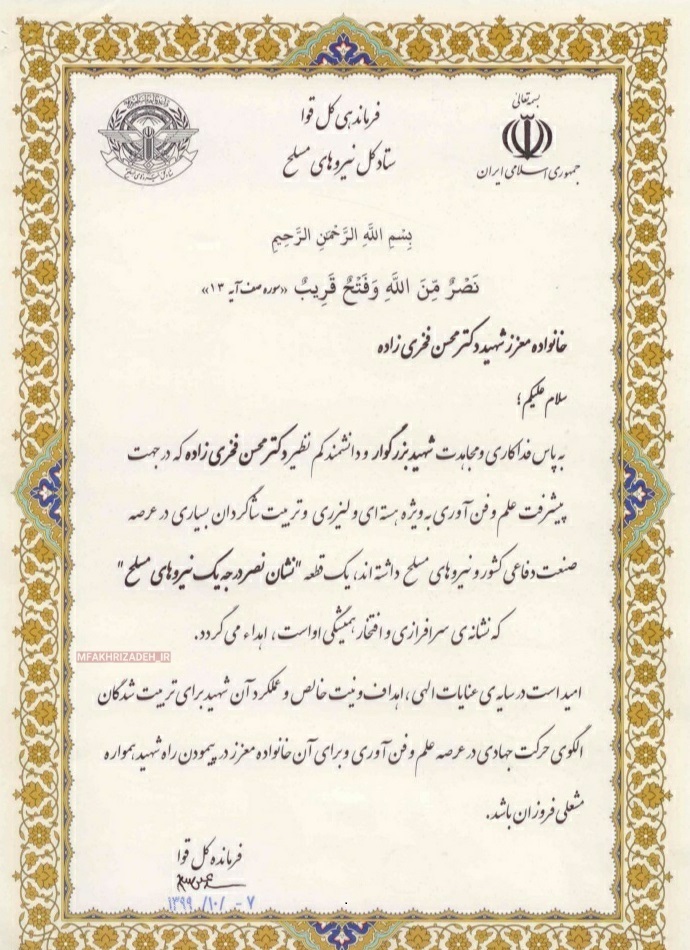 بسمه تعالی
جمهوری اسلامی ایران
فرماندهی کل قوا
ستاد کل نیروهای مسلح
بِسْمِ اللَّهِ الرَّحْمَنِ الرَّحِيمِ
نَصْرٌ مِّنَ اللَّهِ وَفَتْحٌ قَرِيبٌ «سوره صف آیه ۱۳»
خانواده معزز شهید دکتر محسن فخری زاده
سلام علیکم؛
به پاس فداکاری و مجاهدت شهید بزرگوار و دانشمند کم نظیر دکتر محسن فخری زاده که در جهت
پیشرفت علم و فن آوری به ویژه هسته ای و لیزری و تربیت شاگردان بسیاری در عرصه
صنعت دفاعی کشور و نیروهای مسلح داشته اند، یک قطعه "نشان نصر درجه یک نیروهای مسلح"
که نشانه ی سرافرازی و افتخار همیشگی او است، اهداء می گردد.
MFAKHRIZADEH_IR
امید است در سایه ی عنایات الهی، اهداف و نیت خالص و عملکرد آن شهید برای تربیت شدگان
الگوی حرکت جهادی در عرصه علم و فن آوری و برای آن خانواده معزز در پیمودن راه شهید همواره
مشعلی فروزان باشد.
فرمانده کل قوا
۱۳۹۹/۱۰/۰۷